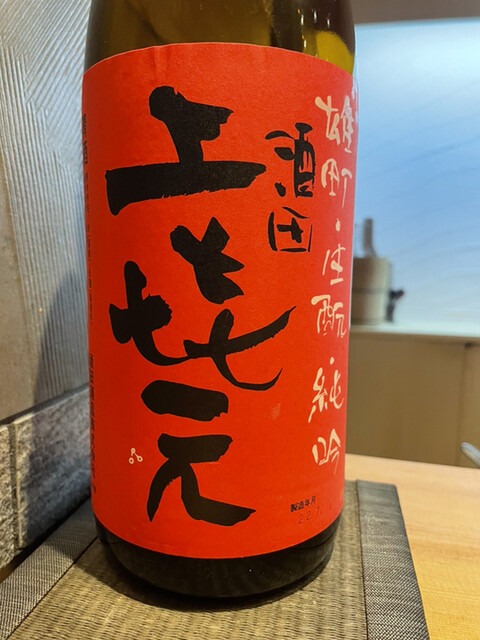 雄町・生酛・純吟
酒田
上㐂元
製造年月